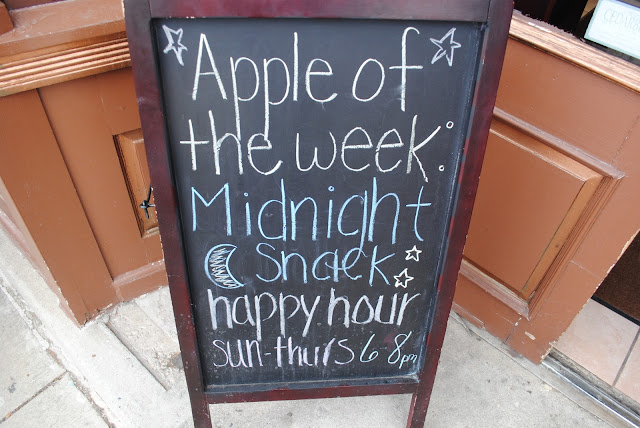 Apple of
the week:
Midnight
Snack
happy hour
sun-thurs 6-8pm